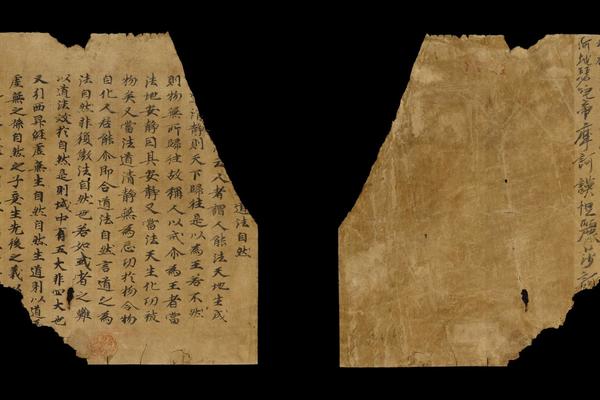 道法自然
五人者謂人能法天地生成
清靜則天下歸往是以為王若不然
則物無所歸往故稱人以戒尒為王者當
法地安靜因其安靜又當法天生化功被
物矣又當法道清靜無為忘功於物令物
自化人君能尒即合道法自然言道之為
法自然非復倣法自然也若如或者之難
以道法效於自然是則域中有五大非四大也
又引西昇經虛無生自然自然生道則以道
虛無之孫自然之子妄生先後之義
阿地瑟宅帝摩訶謨怛麗莎訶